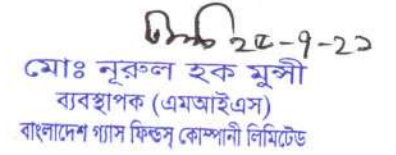 ২৫-৭-২১
মোঃ নূরুল হক মুন্সী
ব্যবস্থাপক (এমআইএস)
বাংলাদেশ গ্যাস ফিল্ডস্ কোম্পানী লিমিটেড